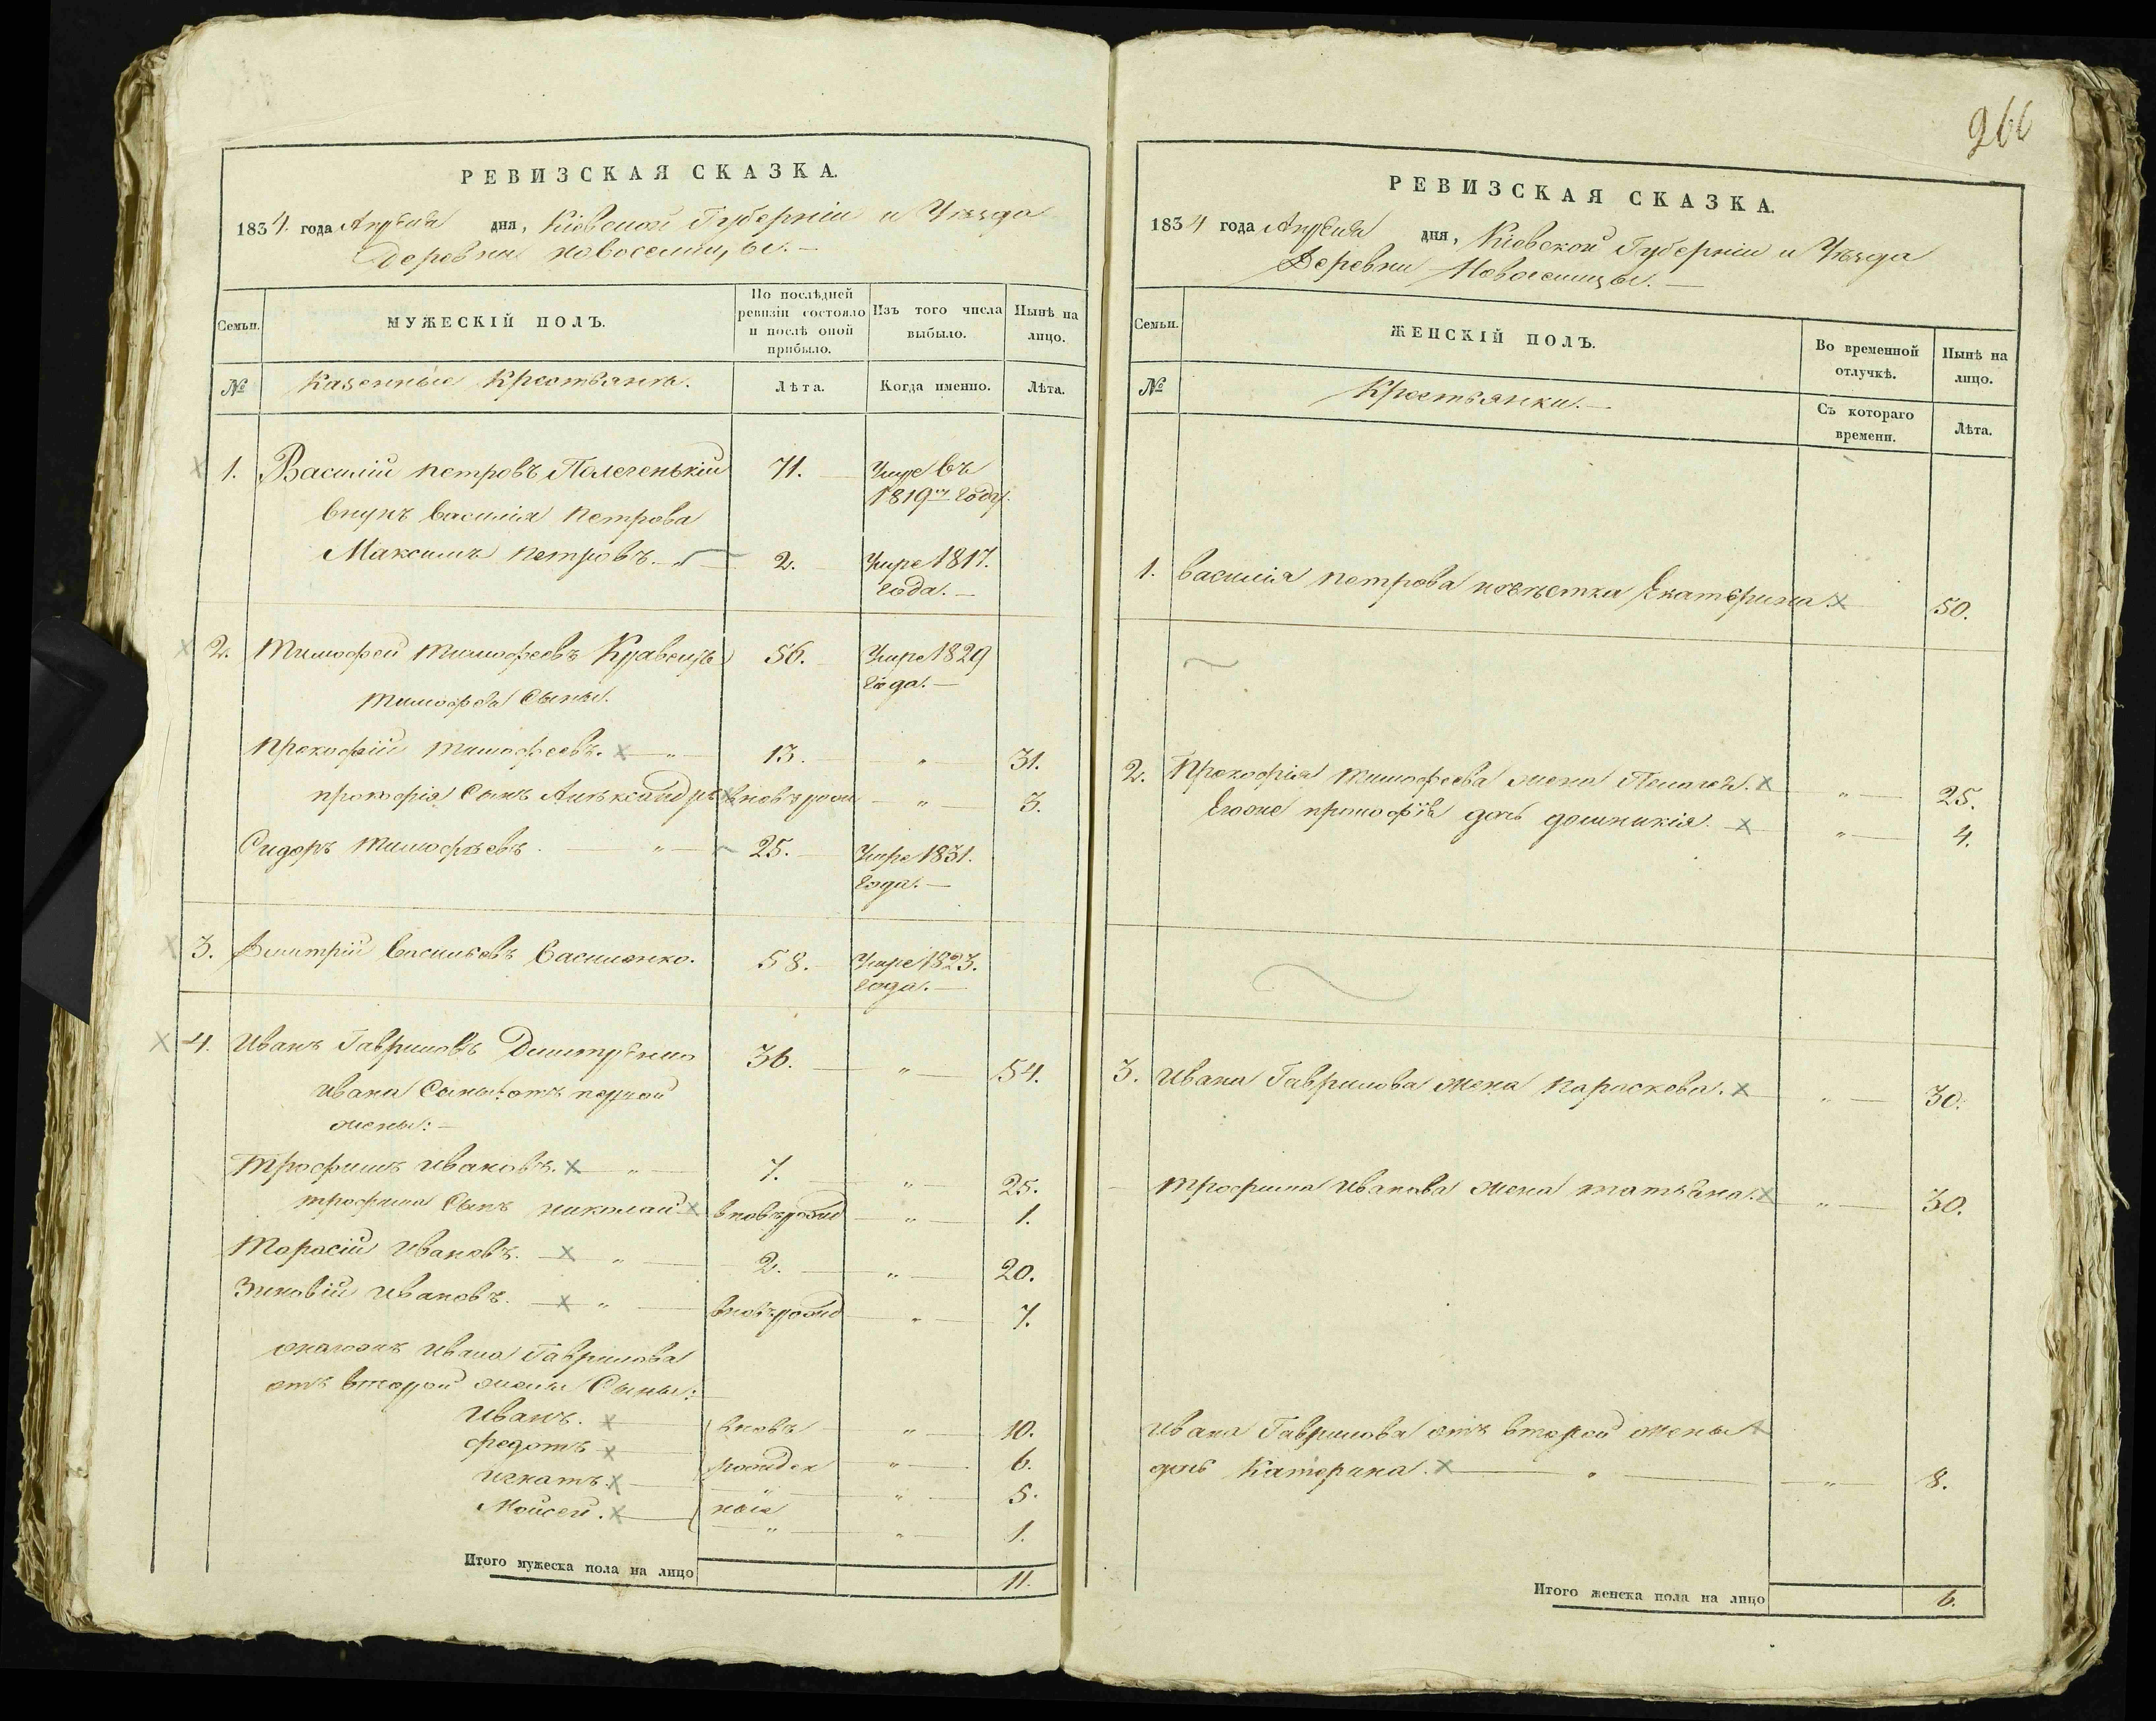 РЕВИЗСКАЯ СКАЗКА.
1834. года Апреля дня, Кіевской Губерніи и Уезда
Деревни Новоселицы. —
Семьи.
МУЖЕСКІЙ ПОЛЪ.
По послѣдней ревизіи состояло и послѣ оной прибыло.
Изъ того числа выбыло.
Нынѣ на лицо.
№
Казенные Крестьяне.
Лѣта.
Когда именно.
Лѣта.
1. Василій Петровъ Полегенькій 71. Умре въ
1819м Году.
внукъ Василія Петрова
Максимъ Петровъ. 2. Умре 1817.
Года. —
2. Тимофей Тимофеевъ Кравецъ 56. Умре 1829
Года. —
Тимофея Сыны.
Прокофій Тимофеевъ. 13. " 31.
Прокофія Сынъ Александръ вновь рож " 3.
Сидоръ Тимофѣевъ. " 25. Умре 1831.
Года. —
3. Дмитрій Васильевъ Василенко. 58. Умре 1823.
Года. —
4. Иванъ Гавриловъ Дмитренко 36. " 54.
Ивана Сыны: отъ первой
жены: —
Трофимъ Ивановъ. " 7. " 25.
Трофима Сынъ Николай вновьрожд " 1.
Тарасій Ивановъ. " 2. " 20.
Зиновій Ивановъ. " вновьрожд " 7.
Ивана Гаврилова
отъ второй жены Сыны:
Иванъ. вновь " 10.
Федотъ рожден " 6.
Игнатъ. " " 5.
Мойсей. ные " " 1.
Итого мужеска пола на лицо 11.
266
РЕВИЗСКАЯ СКАЗКА.
1834 года Апреля дня, Кіевской Губерніи и Уѣзда
Деревни Новоселицы. —
Семьи.
ЖЕНСКІЙ ПОЛЪ.
Во временной отлучкѣ.
Нынѣ на лицо.
№
Крестьянки. —
Съ котораго времени.
Лѣта.
1. Василія Петрова невѣстка Екатерина. 50.
2. Прокофія Тимофеева жена Пелагея. " 25.
Егоже Прокофія дочь Домникія. " 4.
3. Ивана Гаврилова жена Параскева. " 30.
Трофима Иванова жена Татьяна. " 30.
Ивана Гаврилова отъ второй жены
дочь Катерина. " " 8.
Итого женска пола на лицо 6.